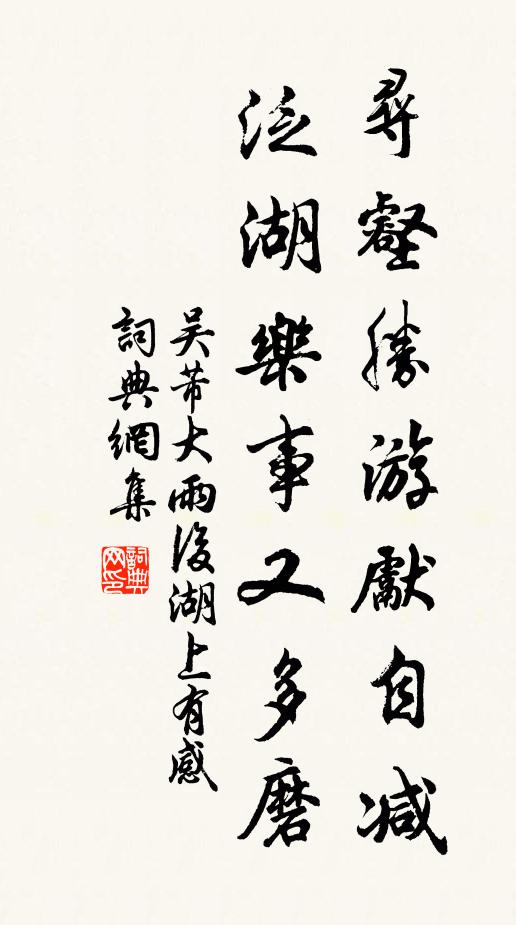 尋壑勝游獻自減
泛湖樂事又多磨
吳芾大雨後湖上有感
詞典網集
詞典网印